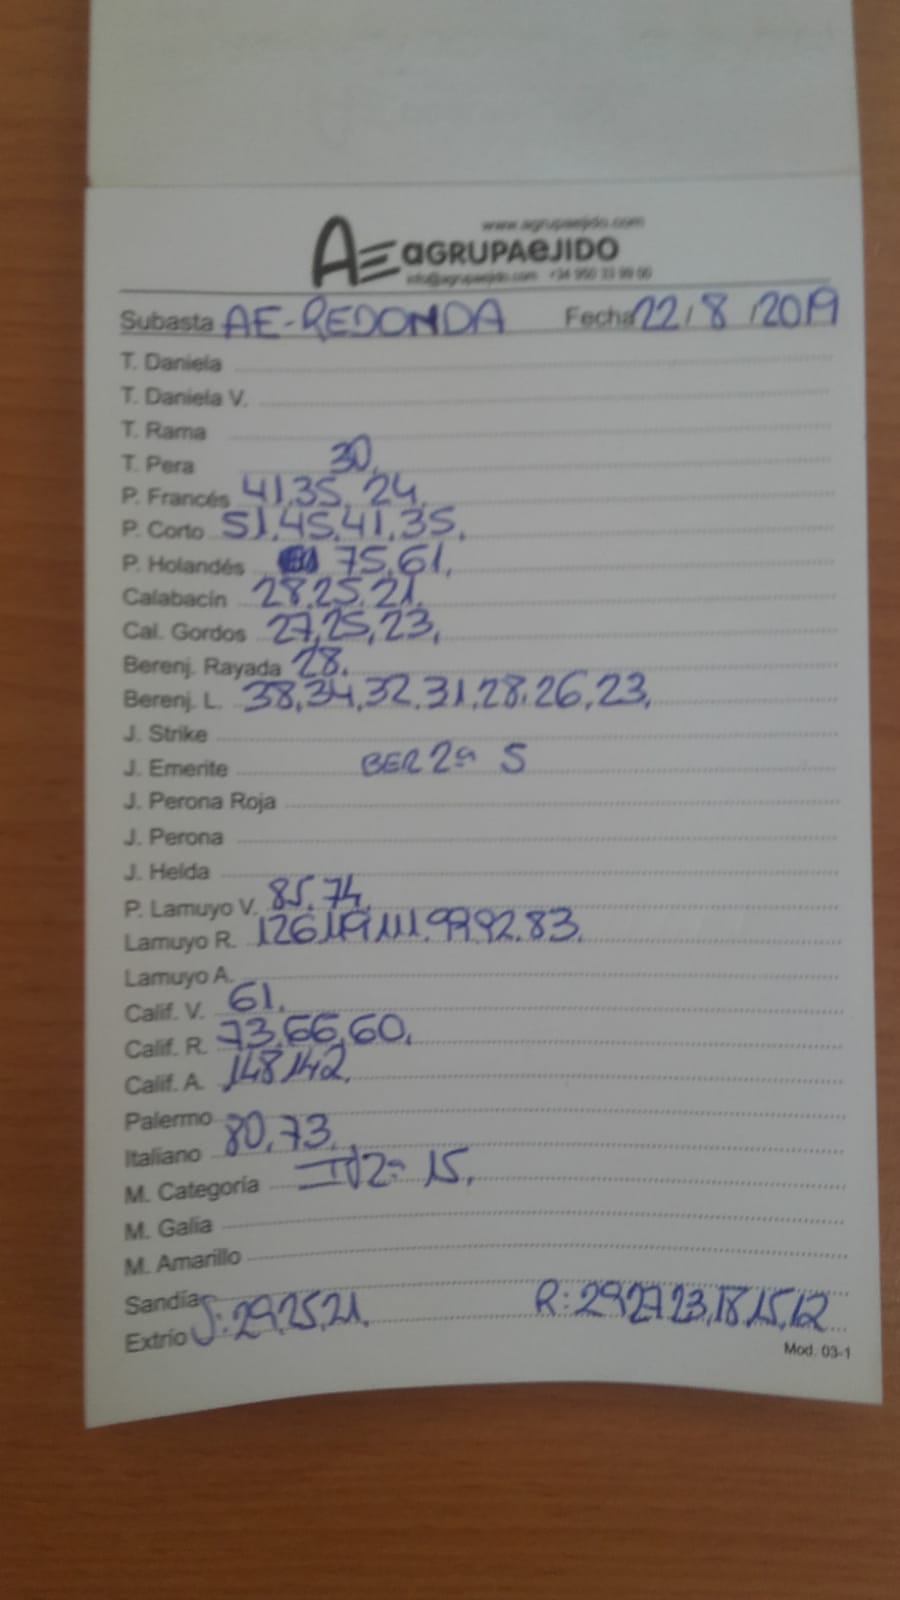 www.agrupaejido.com
AE aGRUPAeJIDO
info@agrupaejido.com +34 950 33 99 00
Subasta AE-REDONDA Fecha 22/8/2019
T. Daniela
T. Daniela V.
T. Rama
T. Pera 30,
P. Francés 41,35, 24,
P. Corto 51,45,41,35,
P. Holandés 75,61,
Calabacín 28,25,21,
Cal. Gordos 27,25,23,
Berenj. Rayada 28,
Berenj. L. 38,34,32,31,28,26,23,
J. Strike
J. Emerite BER 2ª 5
J. Perona Roja
J. Perona
J. Helda
P. Lamuyo V. 85,74,
Lamuyo R. 126,119,111,99,92,83,
Lamuyo A.
Calif. V. 61,
Calif. R. 73,66,60,
Calif. A. 148,142,
Palermo
Italiano 80,73,
M. Categoría 2ª 15,
M. Galia
M. Amarillo
Sandía
Extrío J:29,25,21, R:29,27,23,18,15,12
Mod. 03-1